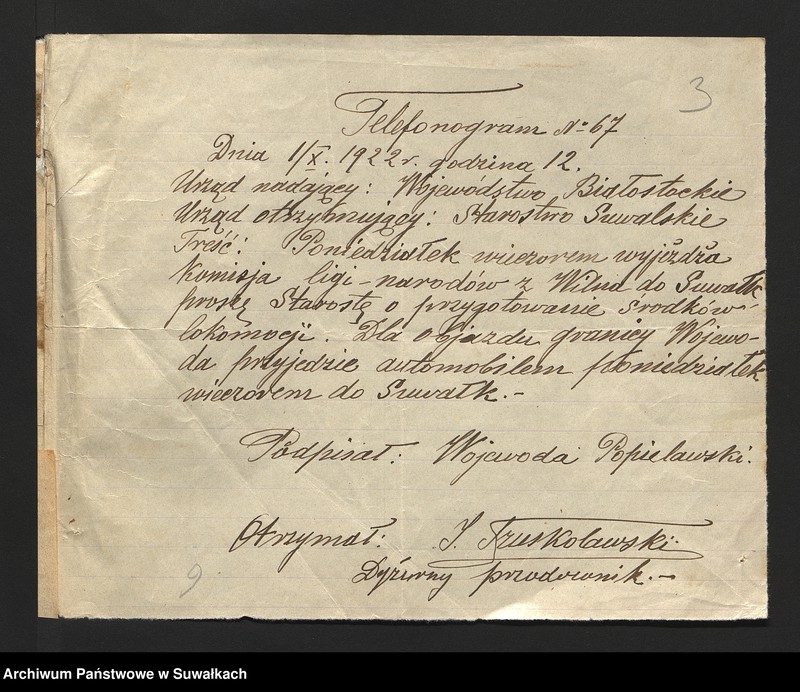 3
Telefonogram № 67
Dnia 1/X. 1922 r. godzina 12.
Urząd nadający: Województwo Białostockie
Urząd otrzymujący: Starostwo Suwalskie
Treść: Poniedziałek wieczorem wyjeżdża
Komisja ligi-narodów z Wilna do Suwałk
proszę Starostę o przygotowanie środków-
lokomocji. Dla objazdu granicy Wojewo-
da przyjedzie automobilem poniedziałek
wieczorem do Suwałk.-
Podpisał: Wojewoda Popielawski.
Otrzymał: S. Truskolawski
Dyżurny przodownik.-
9
Archiwum Państwowe w Suwałkach